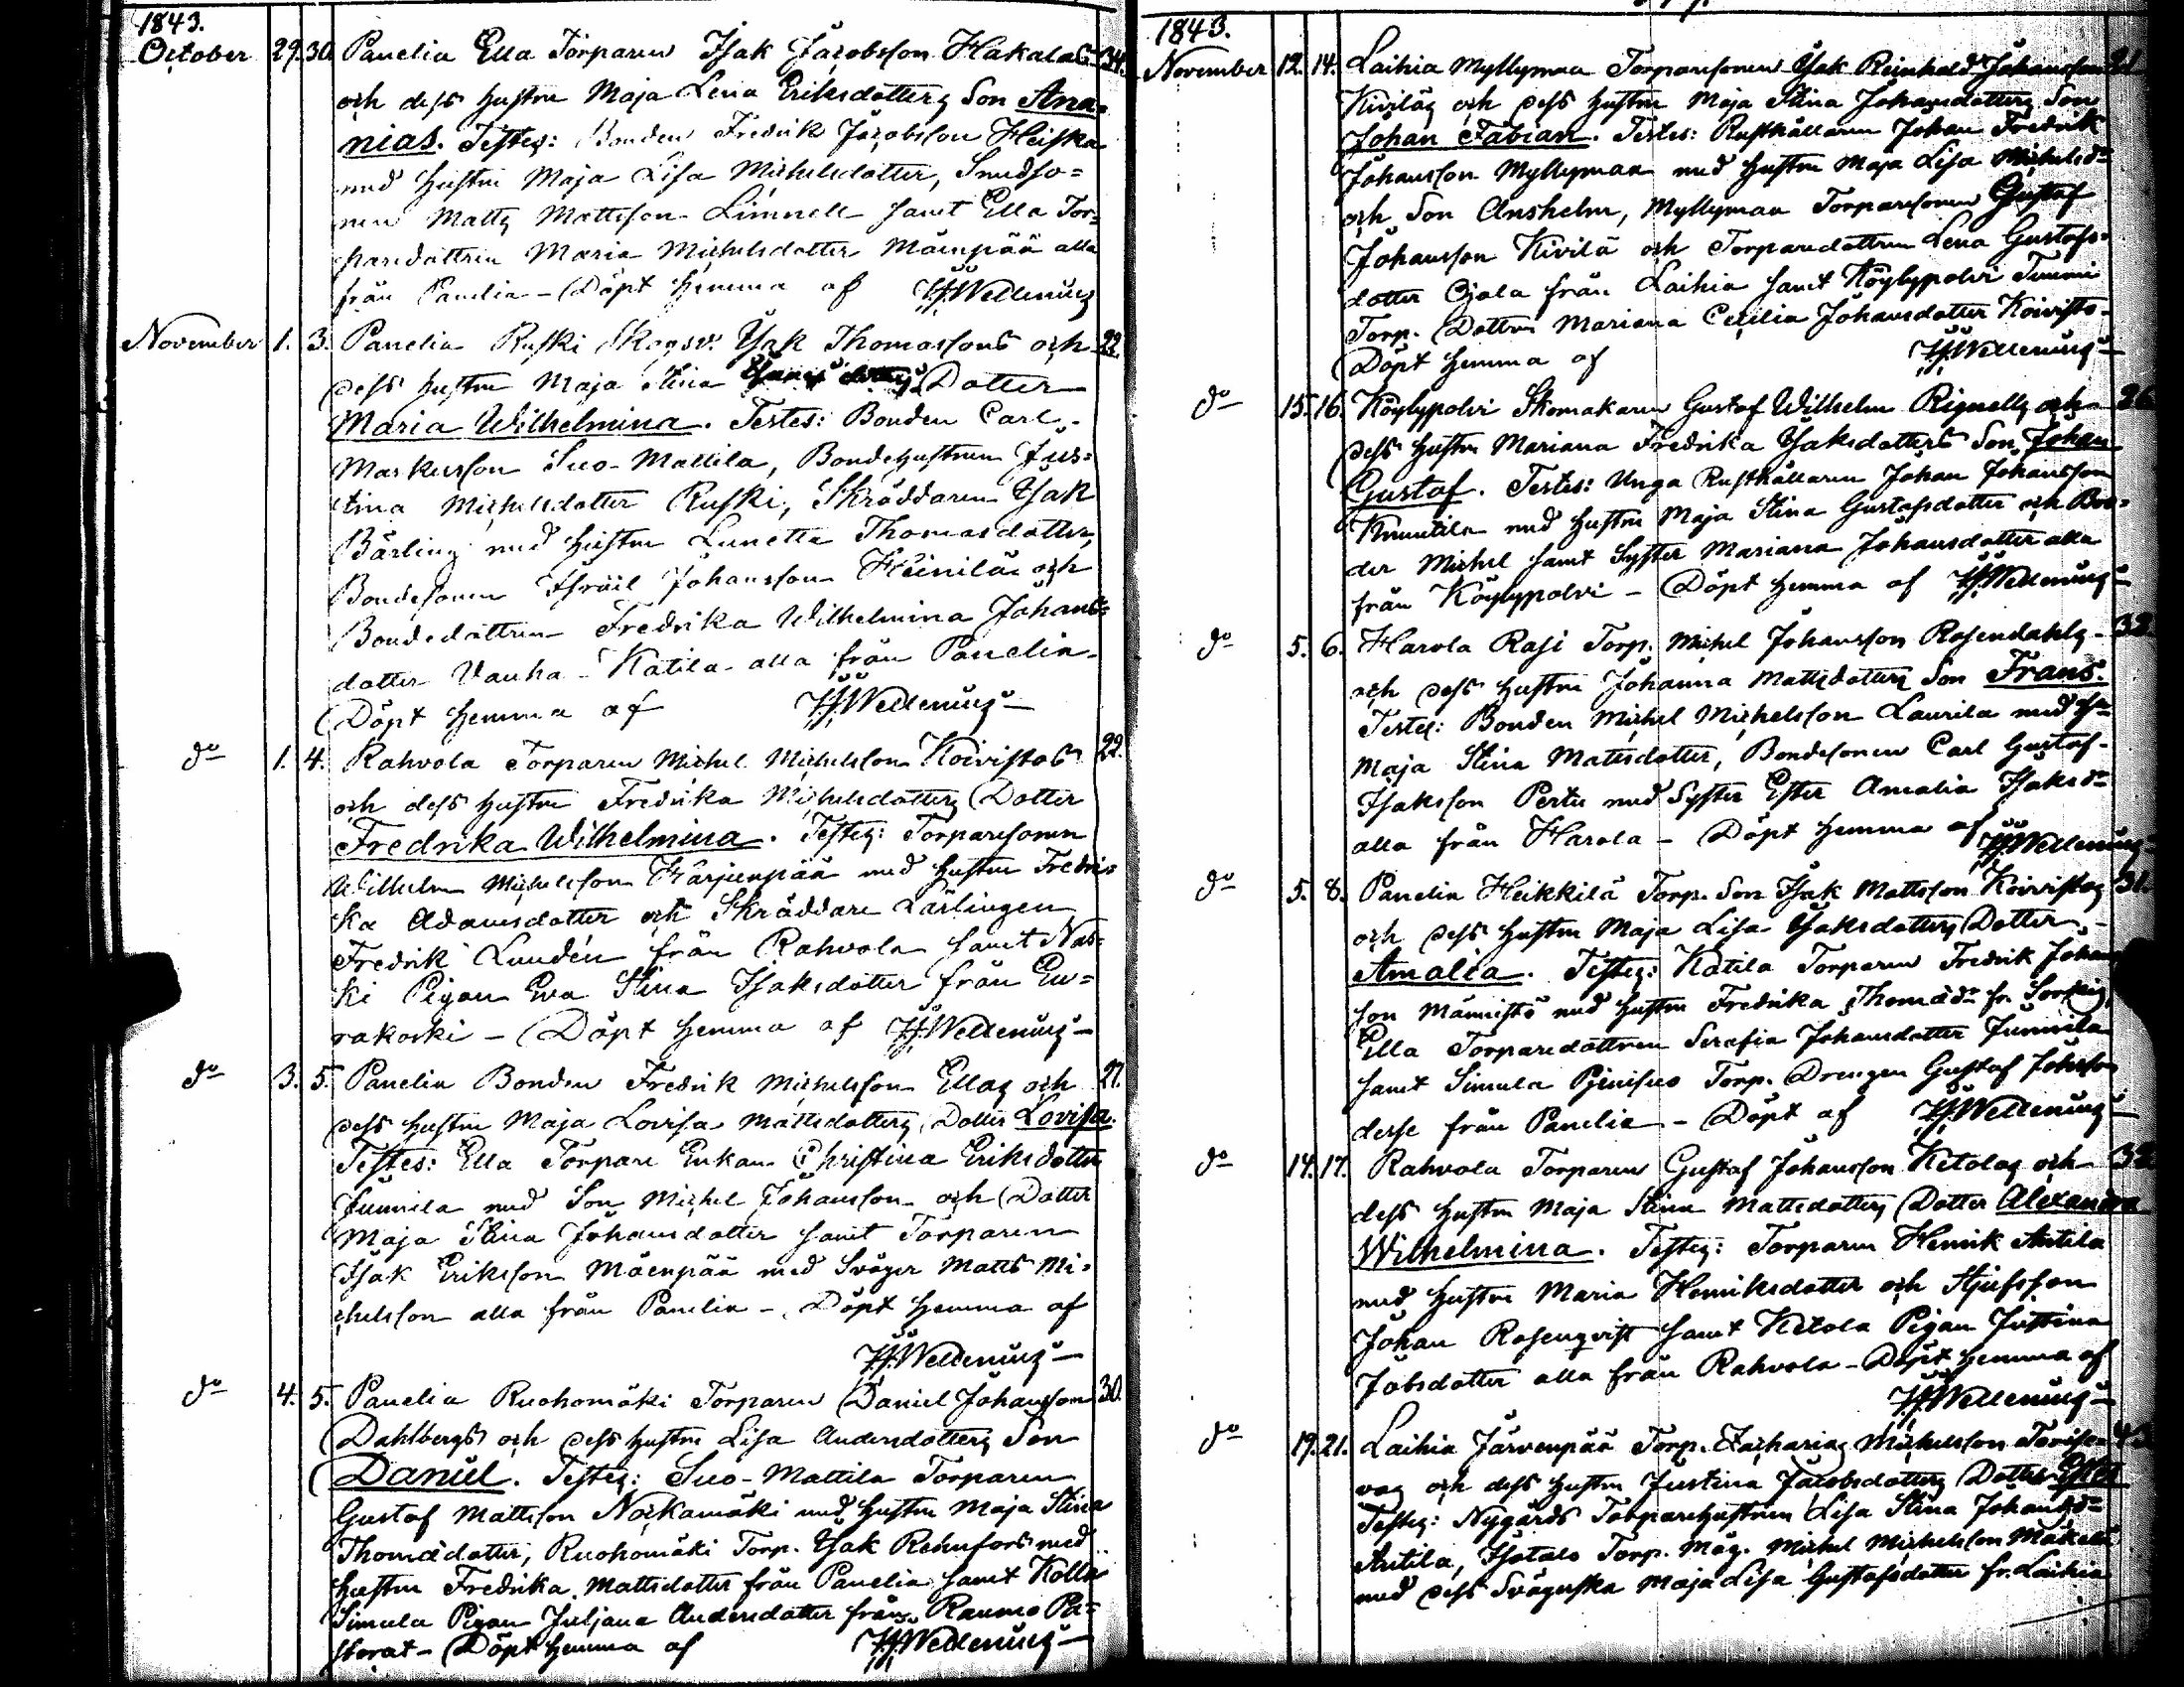 1843.
October 29. 30. Panelia Ella Torparen Isak Jacobsson Hakalas 34.
och dess hustru Maja Lena Eriksdotters Son Ana=
nias. Testes: Bonden Fredrik Jacobsson Heiska
med hustru Maja Lisa Michelsdotter, Smedso=
nen Matts Mattsson Limnell samt Ella Tor=
paredottren Maria Michelsdotter Mäenpää alla
från Panelia – Döpt hemma af HWellenius
November 1. 3. Panelia Ruski Skogsv. Isak Thomassons och 22.
dess hustru Maja Stina Dotter
Maria Wilhelmina. Testes: Bonden Carl
Markusson Suo-Mattila, Bondehustrun Jus=
tina Michelsdotter Ruski, Skräddaren Isak
Bärling med hustru Lunetta Thomasdotter,
Bondesonen Israil Johansson Heinilä och
Bondedottren Fredrika Wilhelmina Johans=
dotter Vanha-Katila alla från Panelia.
Döpt hemma af HWellenius
do 1. 4. Rahvola Torparen Michel Michelsson Koivistos 22.
och dess hustru Fredrika Michelsdotters Dotter
Fredrika Wilhelmina. Testes: Torparesonen
Wilhelm Michelsson Härjenpää med hustru Fredri=
ka Adamsdotter och Skräddare Lärlingen
Fredrik Lundén från Rahvola samt Nas=
ki Pigan Eva Stina Isaksdotter från Eu=
rakoski – Döpt hemma af HWellenius
do 3. 5. Panelia Bonden Fredrik Michelsson Ellas och 27.
dess hustru Maja Lovisa Mattsdotters Dotter Lovisa.
Testes: Ella Torpare Enkan Christina Eriksdotter
Junnila med Son Michel Johansson och Dotter
Maja Stina Johansdotter samt Torparen
Isak Eriksson Mäenpää med Svåger Matts Mi=
chelsson alla från Panelia – Döpt hemma af
HWellenius
do 4. 5. Panelia Ruohomäki Torparen Daniel Johansson 30.
Dahlbergs och dess hustru Lisa Andersdotters Son
Daniel. Testes: Suo-Mattila Torparen
Gustaf Mattsson Nockamäki med hustru Maja Stina
Thomædotter, Ruohomäki Torp. Isak Rehnfors med
hustru Fredrika Mattsdotter från Panelia samt Kolla
Simula Pigan Juljana Andersdotter från Raumo Pa=
storat – Döpt hemma af HWellenius
1843.
November 12. 14. Laihia Myllymaa Torparesonen Isak Reinhold Johansson 21
Kiviläs och dess hustru Maja Stina Johansdotters Son
Johan Fabian. Testes: Rusthållaren Johan Fredrik
Johansson Myllymaa med hustru Maja Lisa Michelsdr
och Son Anshelm, Myllymaa Torparesonen Gustaf
Johansson Kivilä och Torparedottren Lena Gustafs=
dotter Ojala från Laihia samt Köylypolvi Timmi
Torp. Dottren Mariana Cecilia Johansdotter Koivisto
Döpt hemma af HWellenius
do 15. 16. Köylypolvi Skomakaren Gustaf Wilhelm Rignells och 26
dess hustru Mariana Fredrika Isaksdotters Son Johan
Gustaf. Testes: Unga Rusthållaren Johan Johansson
Knuutila med hustru Maja Stina Gustafsdotter och Bro=
der Michel samt Syster Mariana Johansdotter alla
från Köylypolvi – Döpt hemma af HWellenius
do 5. 6. Harola Rasi Torp. Michel Johansson Rosendahls 32.
och dess hustru Johanna Mattsdotters Son Frans.
Testes: Bonden Michel Michelsson Laurila med hu
Maja Stina Mattsdotter, Bondesonen Carl Gustaf
Isaksson Pertu med Syster Ester Amalia Isaksdr
alla från Harola – Döpt hemma af HWellenius
do 5. 8. Panelia Heikkilä Torp. Son Isak Mattsson Koivistos 31.
och dess hustru Maja Lisa Isaksdotters Dotter
Amalia. Testes: Katila Torparen Fredrik Johans
son Männistö med hustru Fredrika Thomædr fr.
Ella Torparedottren Serafia Johansdotter Junnila
samt Simula Torp. Drengen Gustaf Johsson
desse från Panelia – Döpt af HWellenius
do 14. 17. Rahvola Torparen Gustaf Johansson Ketolas och 32
dess hustru Maja Stina Mattsdotters Dotter Alexandra
Wilhelmina. Testes: Torparen Henrik Antila
med hustru Maria Henriksdotter och Stjufsson
Johan Rosenqvist samt Ketola Pigan Justina
Jobsdotter alla från Rahvola – Döpt hemma af
HWellenius
do 19. 21. Laihia Järvenpää Torp. Zacharias Michelsson Torise= 43
vas och dess hustru Justina Jacobsdotters Dotter
Testes: Nygårds Torparehustrun Lisa Stina Johansdr
Antila, Isotalo Torp. Måg. Michel Michelsson Mäkelä
med dess Svägerska Maja Lisa Gustafsdotter fr. Laihia